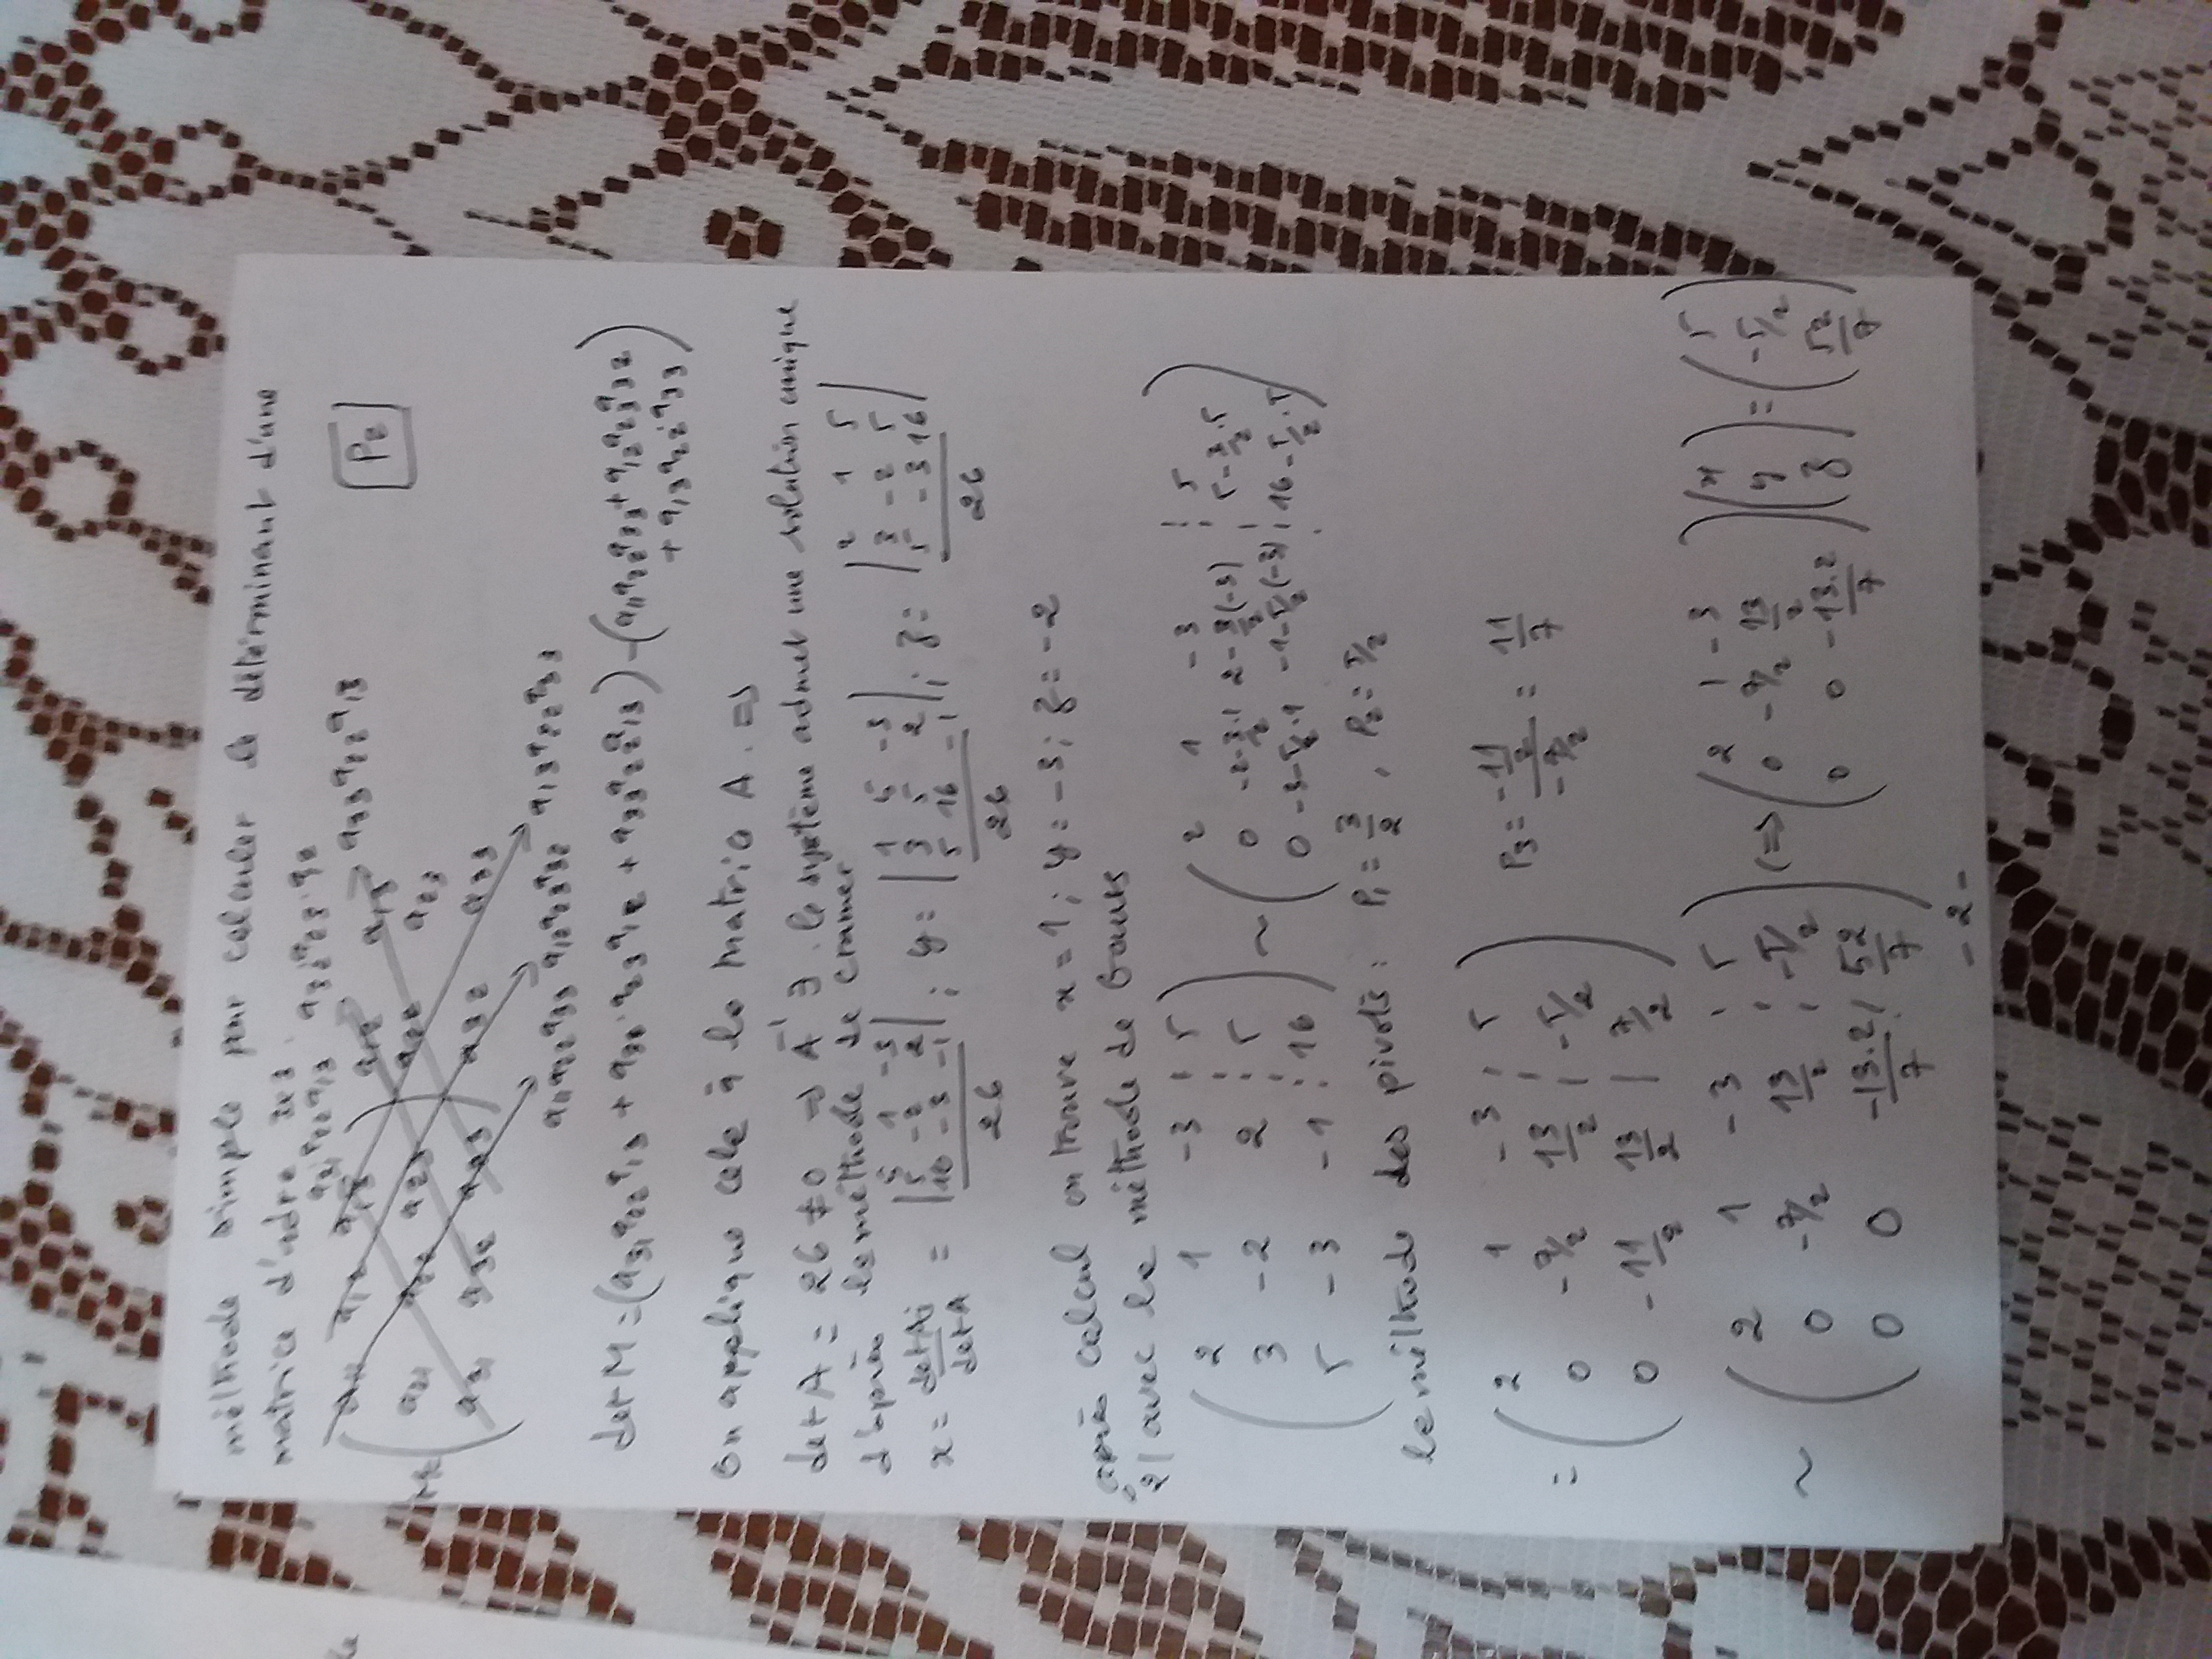 méthode simple pour calculer le déterminant d'une
matrice d'ordre 3x3.
P2
a11 a12 a13 a11 a12 a13
a21 a22 a23 a21 a22 a23
a31 a32 a33 a31 a32 a33
a11a22a33 a12a23a32 a13a22a33
det M = (a31a22a13 + a32·a23a12 + a33a22a13) - (a11a22a33 + a12a23a32
+ a13a22·a33)
on applique cela à la matrice A. ⇒
det A = 26 ≠ 0 ⇒ A⁻¹ ∃. le système admet une solution unique
d'après la méthode de cramer
x = det Ai / det A = |5 1 -3; 5 -2 2; 16 -3 -1| / 26 ; y = |2 5 -3; 3 5 2; 5 16 -1| / 26 ; z = |2 1 5; 3 -2 5; 5 -3 16| / 26
après calcul on trouve x = 1 ; y = -3 ; z = -2
2/ avec la méthode de Gauss
( 2 1 -3 ⋮ 5 ) ~ ( 2 1 -3 ⋮ 5 )
3 -2 2 ⋮ 5 0 -2-3/2·1 2-3/2(-3) ⋮ 5-3/2·5
5 -3 -1 ⋮ 16 0 -3-5/2·1 -1-5/2(-3) ⋮ 16-5/2·5
la méthode des pivots : P1 = 3/2 , P2 = 5/2
= ( 2 1 -3 | 5 )
0 -7/2 13/2 | -5/2
0 -11/2 13/2 | 7/2
P3 = (-11/2)/(-7/2) = 11/7
~ ( 2 1 -3 | 5 ) ⇔ ( 2 1 -3 ) ( x ) = ( 5 )
0 -7/2 13/2 | -5/2 0 -7/2 13/2 y -5/2
0 0 -13·2/7 | 52/7 0 0 -13·2/7 z 52/7
- 2 -